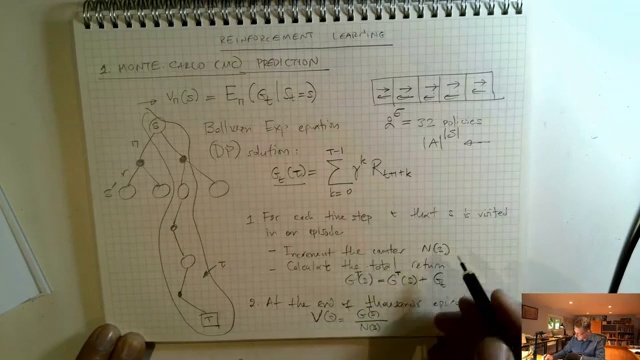 REINFORCEMENT LEARNING
1 MONTE CARLO (MC) PREDICTION
→ Vπ(s) = Eπ(Gt | St=s)
2^5 = 32 policies
|A|^|S| ←
Bellman Exp equation
(DP) solution:
Gt(τ) = T-1 Σ k=0 γ^k Rt+1+k
S
π
r
s'
τ
T
1 For each time step t that s is visited
in an episode
- Increment the counter N(s)
- Calculate the total return
G^T(s) = G^T(s) + Gt
2. At the end of thousands
V(s) = G(s) / N(s)